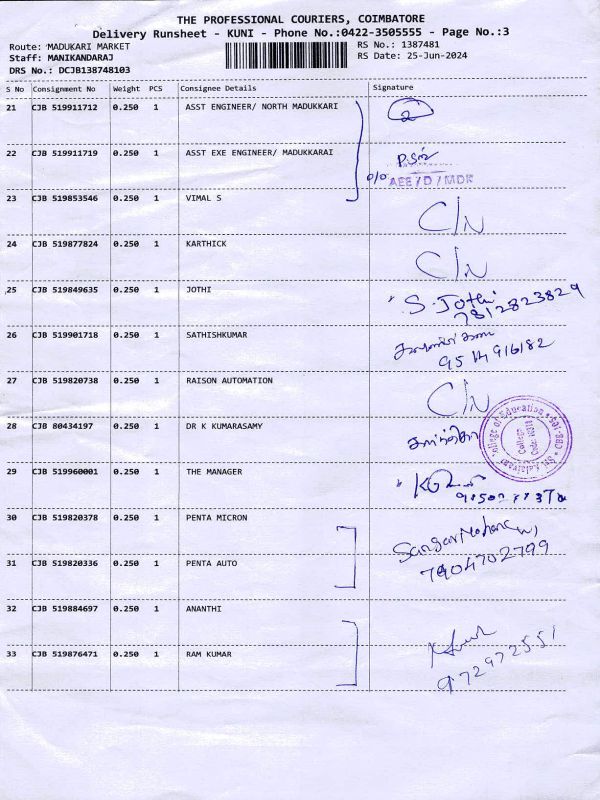 THE PROFESSIONAL COURIERS, COIMBATORE
Delivery Runsheet - KUNI - Phone No.:0422-3505555 - Page No.:3
Route: MADUKARI MARKET RS No.: 1387481
Staff: MANIKANDARAJ RS Date: 25-Jun-2024
DRS No.: DCJB138748103
S No Consignment No Weight PCS Consignee Details Signature
21 CJB 519911712 0.250 1 ASST ENGINEER/ NORTH MADUKKARI 2
22 CJB 519911719 0.250 1 ASST EXE ENGINEER/ MADUKKARAI
O/O AEE/D/MDK
23 CJB 519853546 0.250 1 VIMAL S C/N
24 CJB 519877824 0.250 1 KARTHICK C/N
25 CJB 519849635 0.250 1 JOTHI S. Jothi
7812823829
26 CJB 519901718 0.250 1 SATHISHKUMAR
27 CJB 519820738 0.250 1 RAISON AUTOMATION C/N
28 CJB 80434197 0.250 1 DR K KUMARASAMY
College of Education
College
29 CJB 519960001 0.250 1 THE MANAGER
30 CJB 519820378 0.250 1 PENTA MICRON
31 CJB 519820336 0.250 1 PENTA AUTO 7904702799
32 CJB 519884697 0.250 1 ANANTHI
33 CJB 519876471 0.250 1 RAM KUMAR